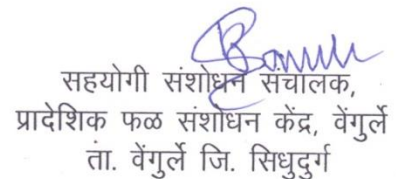 सहयोगी संशोधन संचालक,
प्रादेशिक फळ संशोधन केंद्र, वेंगुर्ले
ता. वेंगुर्ले जि. सिधुदुर्ग